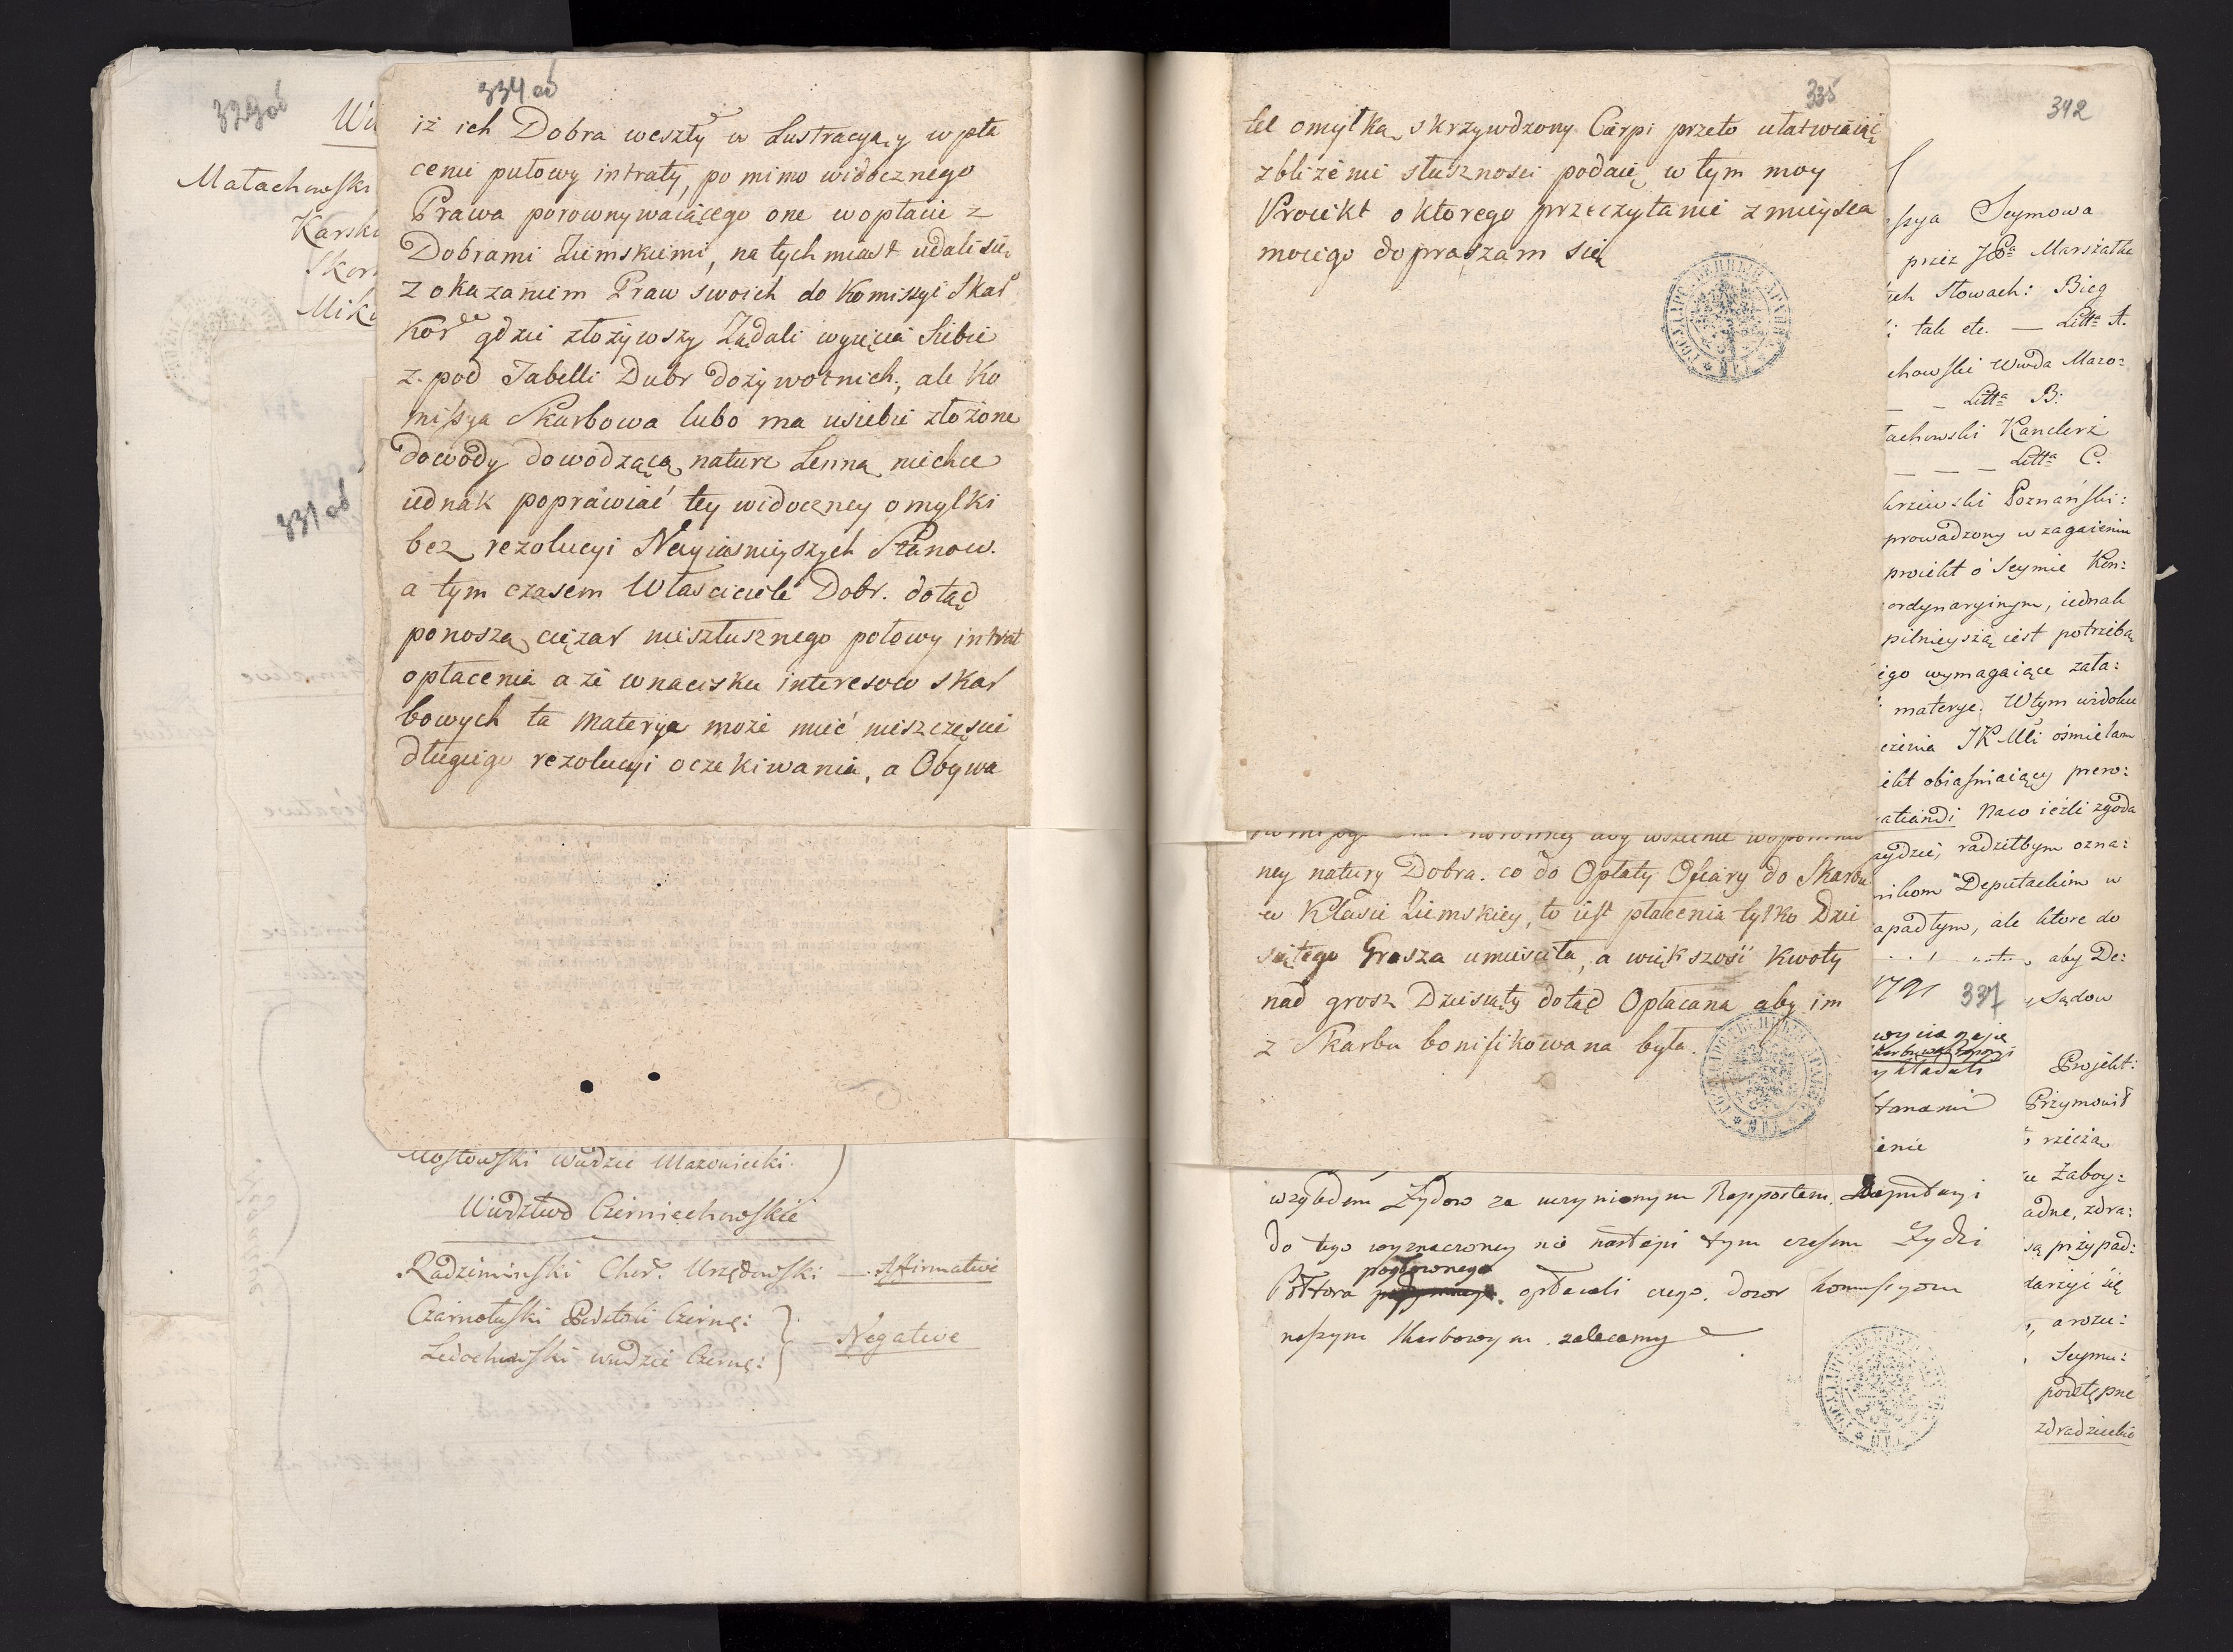 329od
Małachowski
Karski
Mik
331od
334 od
iż ich Dobra weszły w Lustracyą y w pła
cenie połowy intraty, po mimo widocznego
Prawa porownywaiącego one wopłacie z
Dobrami Ziemskiemi, na tych miast udali się
z okazaniem Praw swoich do Komissyi Skar
Kor gdzie złożywszy Żądali wyięcia Siebie
z. pod Tabelli Dubr dożywotnich, ale Ko
missya Skarbowa lubo ma usiebie złożone
dowody dowodzącą nature Lenną niechce
iednak poprawiać tey widoczney omyłki
bez rezolucyi Nayiasnieyszych Stanow.
a tym czasem Właściciele Dobr. dotąd
ponoszą ciężar niesztusznego połowy intrat
opłacenia a że wnacisku interesow skar
bowych ta materya może mieć nieszczęście
długiego rezolucyi oczekiwania, a Obywa
Mostowski Wwdzic Mazowiecki.
Wwdztwo Czerniechowskie
Radziminski Chor. Urzędowski — Affirmative
Czarnołuski Czernię:
Ledochowski wwdzic Czernię: } Negative
335
tel omyłką skrzywdzony Cierpi przeto ułatwiaiąc
zbliżenie słusznosci podaię w tym moy
Proiekt o ktorego przeczytanie z mieysca
moiego dopraszam się
ney natury Dobra. co do Opłaty Ofiary do Skarbu
w Klasie Ziemskiey, to iest płacenia tylko Dzie
siątego Grosza umieściła, a większość kwoty
nad grosz Dziesiąty dotąd Opłacana aby im
z Skarbu bonifikowana była.
względem Żydow za uczynionym Rapportem Deputacyi
do tego wyznaczoney nie nastąpi tym czasem Żydzi
pogłownego
Połtora opłacali czego. dozor kommissyom
naszym Skarbowym zalecamy
342
ssya Seymowa
przez JPa Marszałka
ych Słowach: Bieg
tak etc. — Litta A.
chowski Wwda Mazo:
— Litta B:
łachowski Kanclerz
— — — Litta C.
krzewski Poznański:
prowadzony w zagaieniu
proiekt o Seymie Kon:
ordynaryinym, iednak
pilnieyszą iest potrzebą
ego wymagaiące zała:
materye. Wtym widoku
czenia JKMci ośmielam
iekt obiaśniaiący prero:
Naco ieżli zgoda
aydzie, radziłbym ozna:
nikom Deputackim w
apadłym, ale ktore do
aby De:
Sądow
1791 337
wyciągaią
ykładali
Stanami
enie
Projekt:
Przymowił
rzeczą
Zaboy:
adne, zdra:
są przypad:
darzyć się
a rozu:
Seymu:
podstępne
zdradzieckie